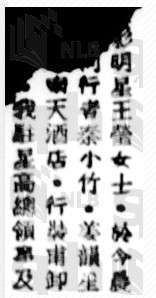 影明星王瑩女士·於今晨
行者奈小竹·姜韻笙
南天酒店·行裝甫卸
我駐星高總領事及